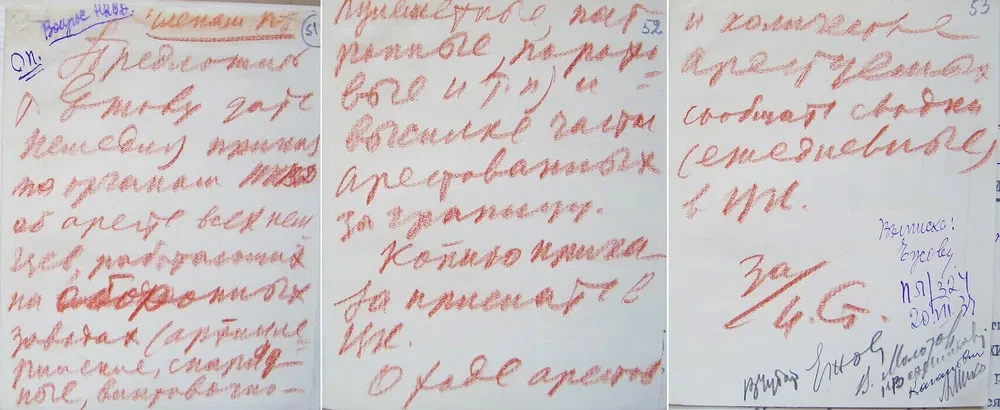 Вопрос НКВД.
51
ОП.
Предложить
т. Ежову дать
немедля приказ
по органам НКВД
об аресте всех нем-
цев, работающих
на оборонных
заводах (артилле-
рийские, снаряд-
ные, винтовочно-
52
пулеметные, пат-
ронные, порохо-
вые и т.п.) и
высылке части
арестованных
за границу.
Копию прика-
за прислать в
ЦК.
О ходе арестов
53
и количестве
арестуемых
сообщать сводки
(ежедневные)
в ЦК.
За
И. Ст.
Выписка:
Ежову
П51/324
20.VII.37
Ежов
В. Молотов
Каганович